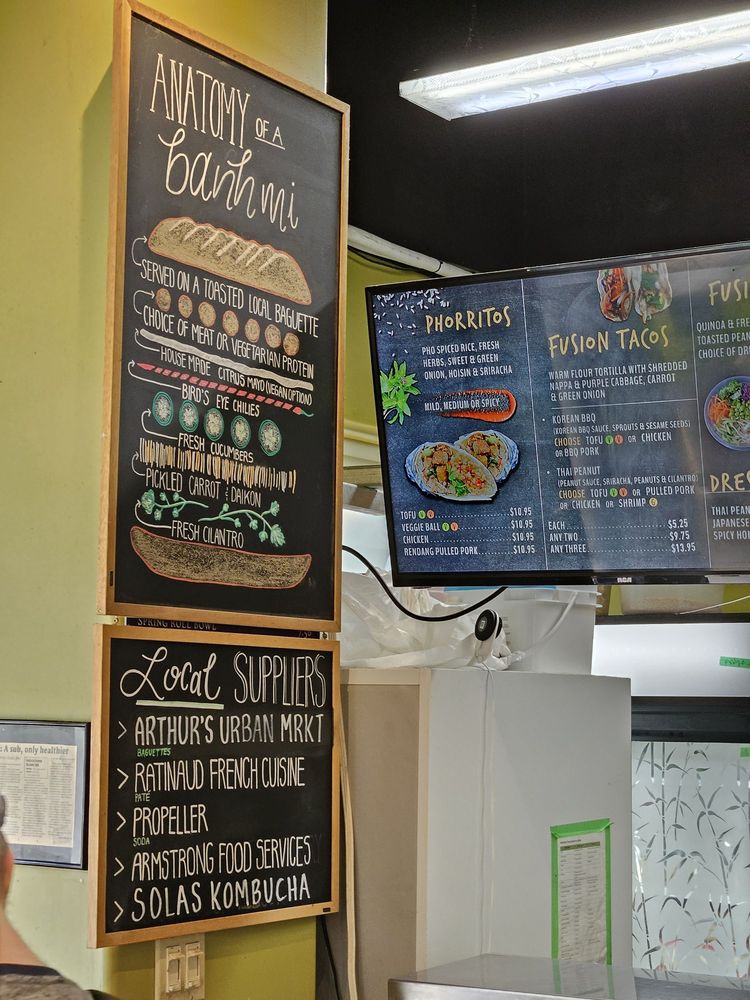 ANATOMY OF A
banh mi
SERVED ON A TOASTED LOCAL BAGUETTE
CHOICE OF MEAT OR VEGETARIAN PROTEIN
HOUSE MADE CITRUS MAYO (VEGAN OPTION)
BIRD'S EYE CHILIES
FRESH CUCUMBERS
PICKLED CARROT & DAIKON
FRESH CILANTRO
SPRING ROLL BOWL
Local SUPPLIERS
> ARTHUR'S URBAN MRKT
BAGUETTES
> RATINAUD FRENCH CUISINE
PATÉ
> PROPELLER
SODA
> ARMSTRONG FOOD SERVICES
> SOLAS KOMBUCHA
: A sub, only healthier
PHORRITOS
PHO SPICED RICE, FRESH
HERBS, SWEET & GREEN
ONION, HOISIN & SRIRACHA
MILD, MEDIUM OR SPICY
TOFU V V $10.95
VEGGIE BALL V V $10.95
CHICKEN $10.95
RENDANG PULLED PORK $10.95
FUSION TACOS
WARM FLOUR TORTILLA WITH SHREDDED
NAPPA & PURPLE CABBAGE, CARROT
& GREEN ONION
• KOREAN BBQ
(KOREAN BBQ SAUCE, SPROUTS & SESAME SEEDS)
CHOOSE TOFU V V OR CHICKEN
OR BBQ PORK
• THAI PEANUT
(PEANUT SAUCE, SRIRACHA, PEANUTS & CILANTRO)
CHOOSE TOFU V V OR PULLED PORK
OR CHICKEN OR SHRIMP G
EACH $5.25
ANY TWO $9.75
ANY THREE $13.95
FUSI
QUINOA & FRE
TOASTED PEAN
CHOICE OF DR
DRES
THAI PEAN
JAPANESE
SPICY HOI
RCA